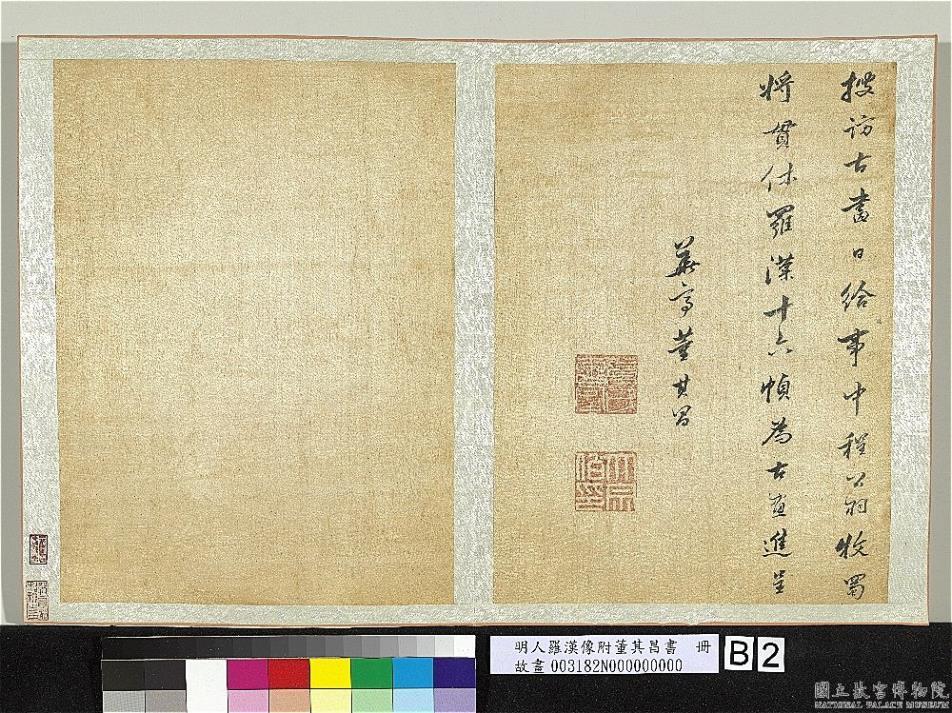 搜訪古書日給事中程翁牧蜀
將貫休羅漢十六幀為古畫進呈
華亭董其昌
明人羅漢像附董其昌書　冊
故畫003182N000000000
B2
國立故宮博物院
NATIONAL PALACE MUSEUM